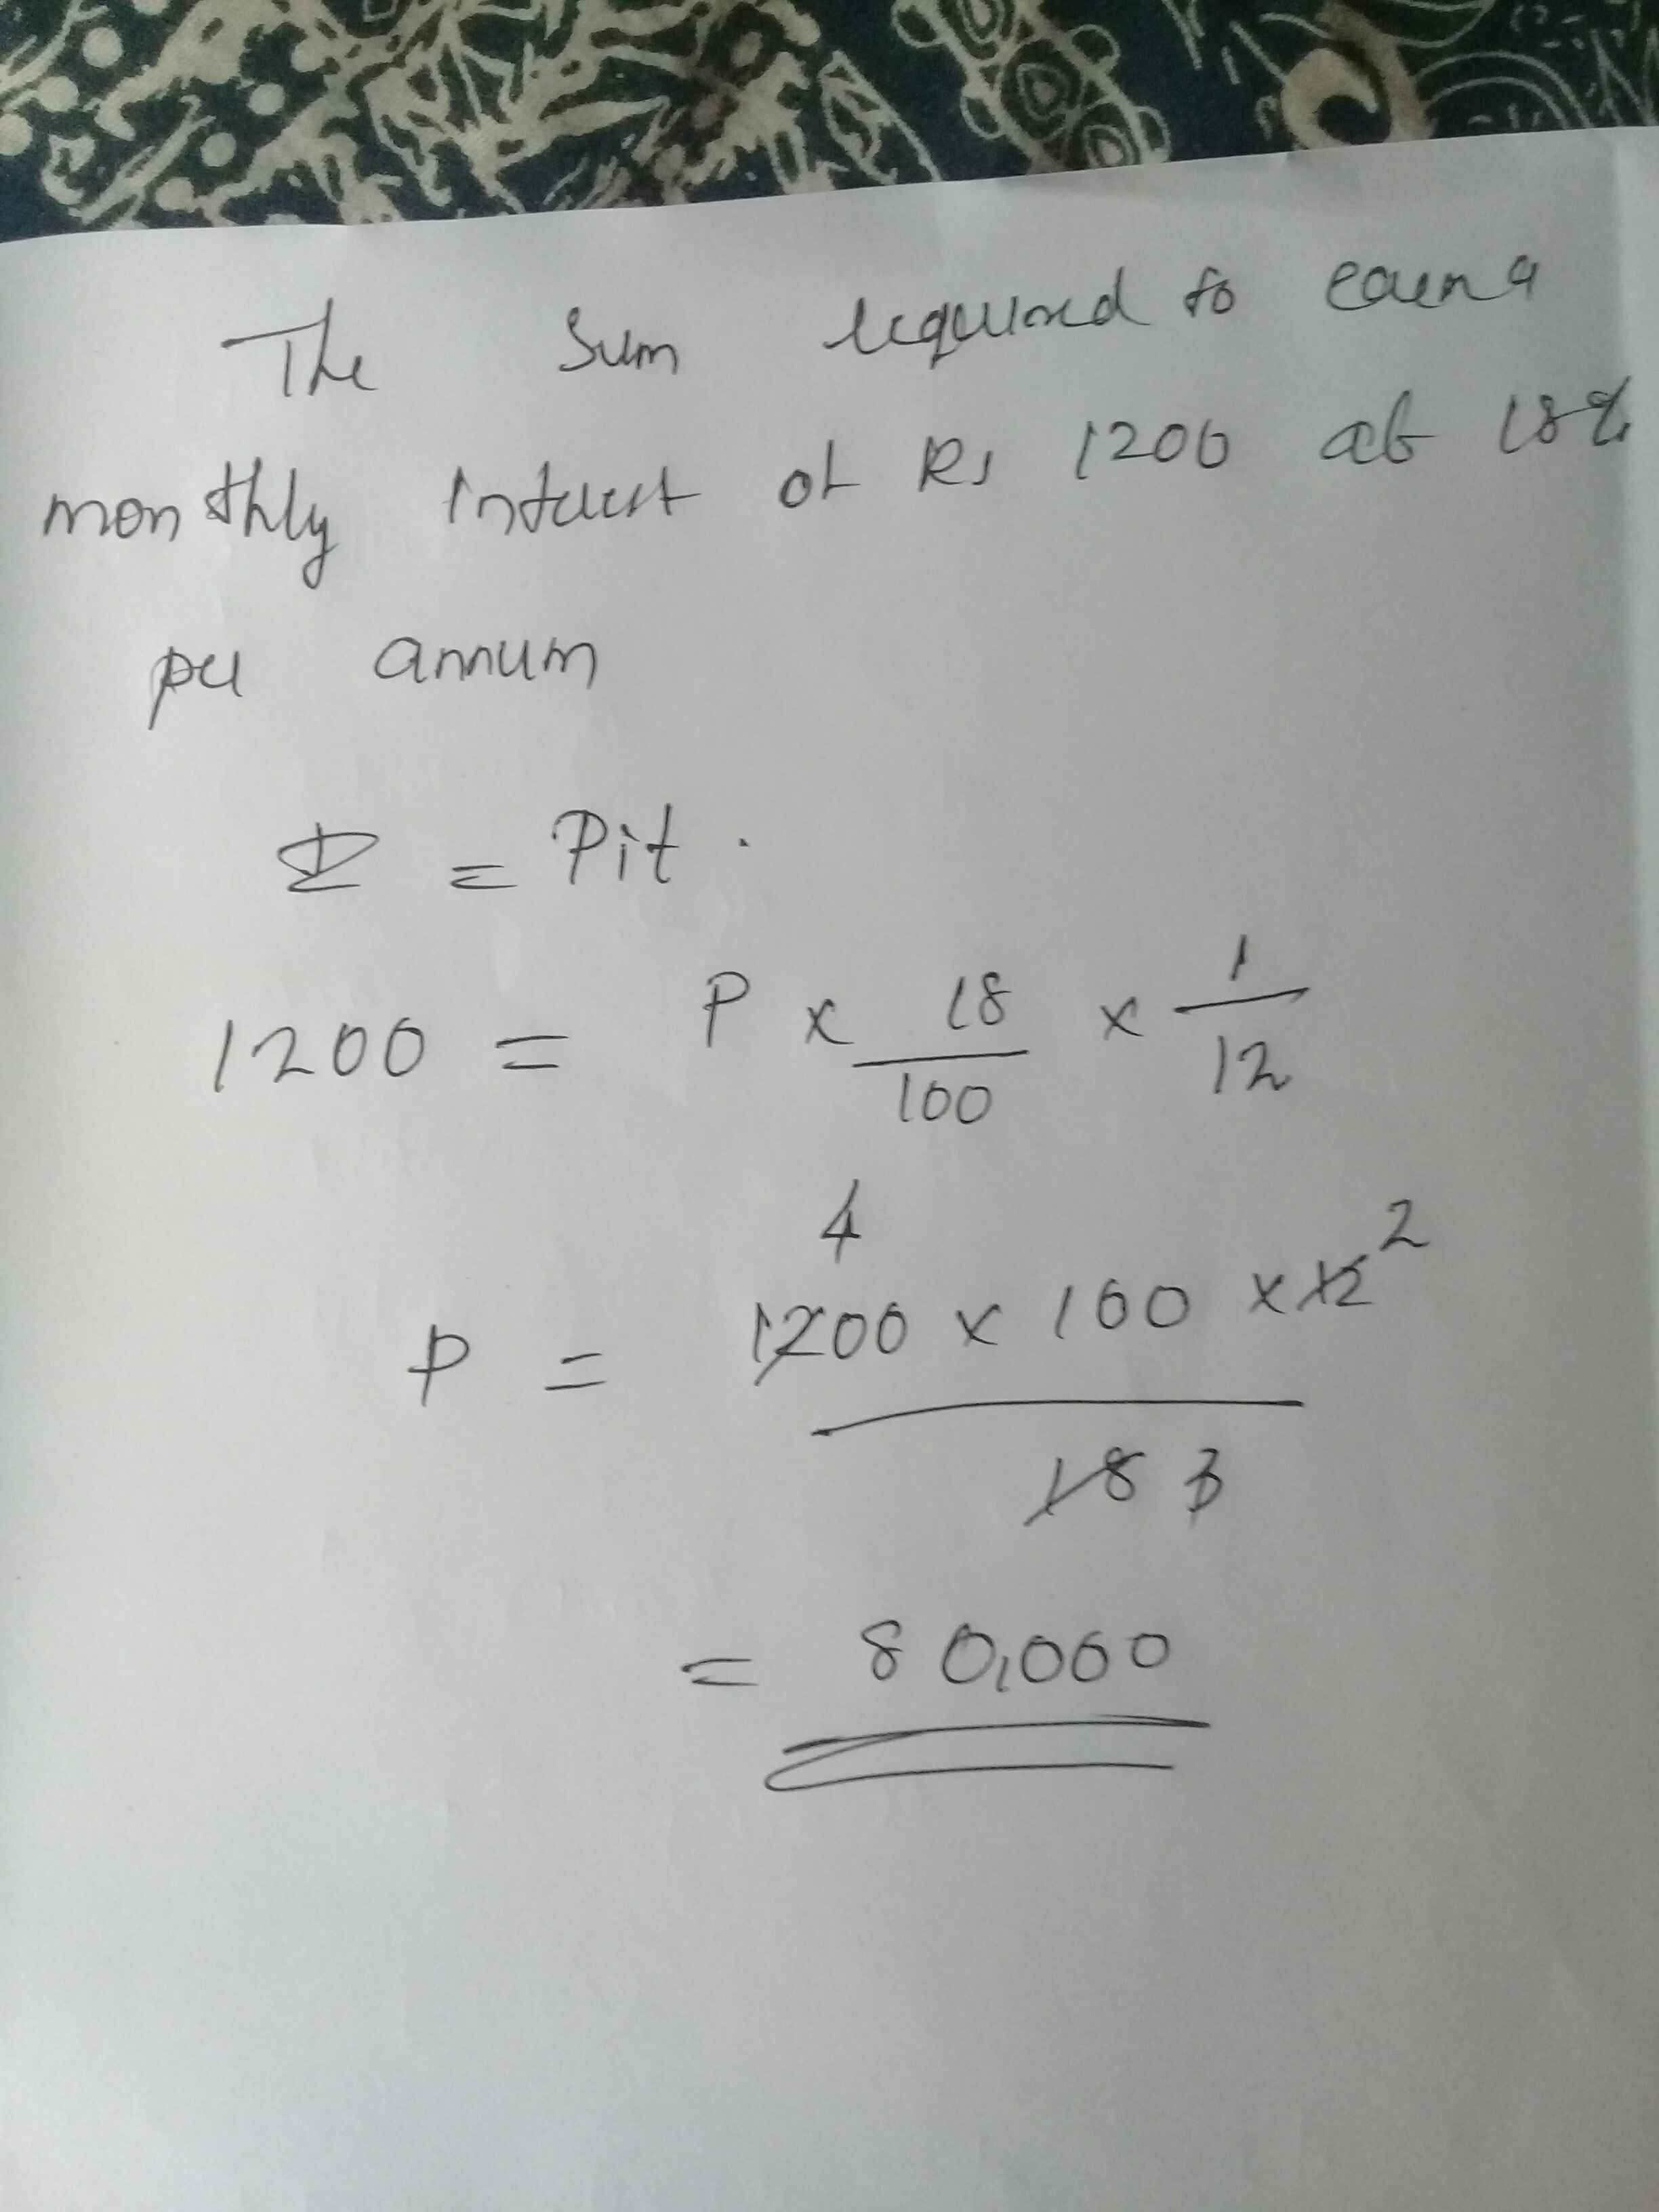 The sum required to earn a
monthly interest of Rs 1200 at 18%
per annum
I = Pit.
1200 = P x 18/100 x 1/12
4 2
P = 1200 x 100 x 12
18 3
= 80,000